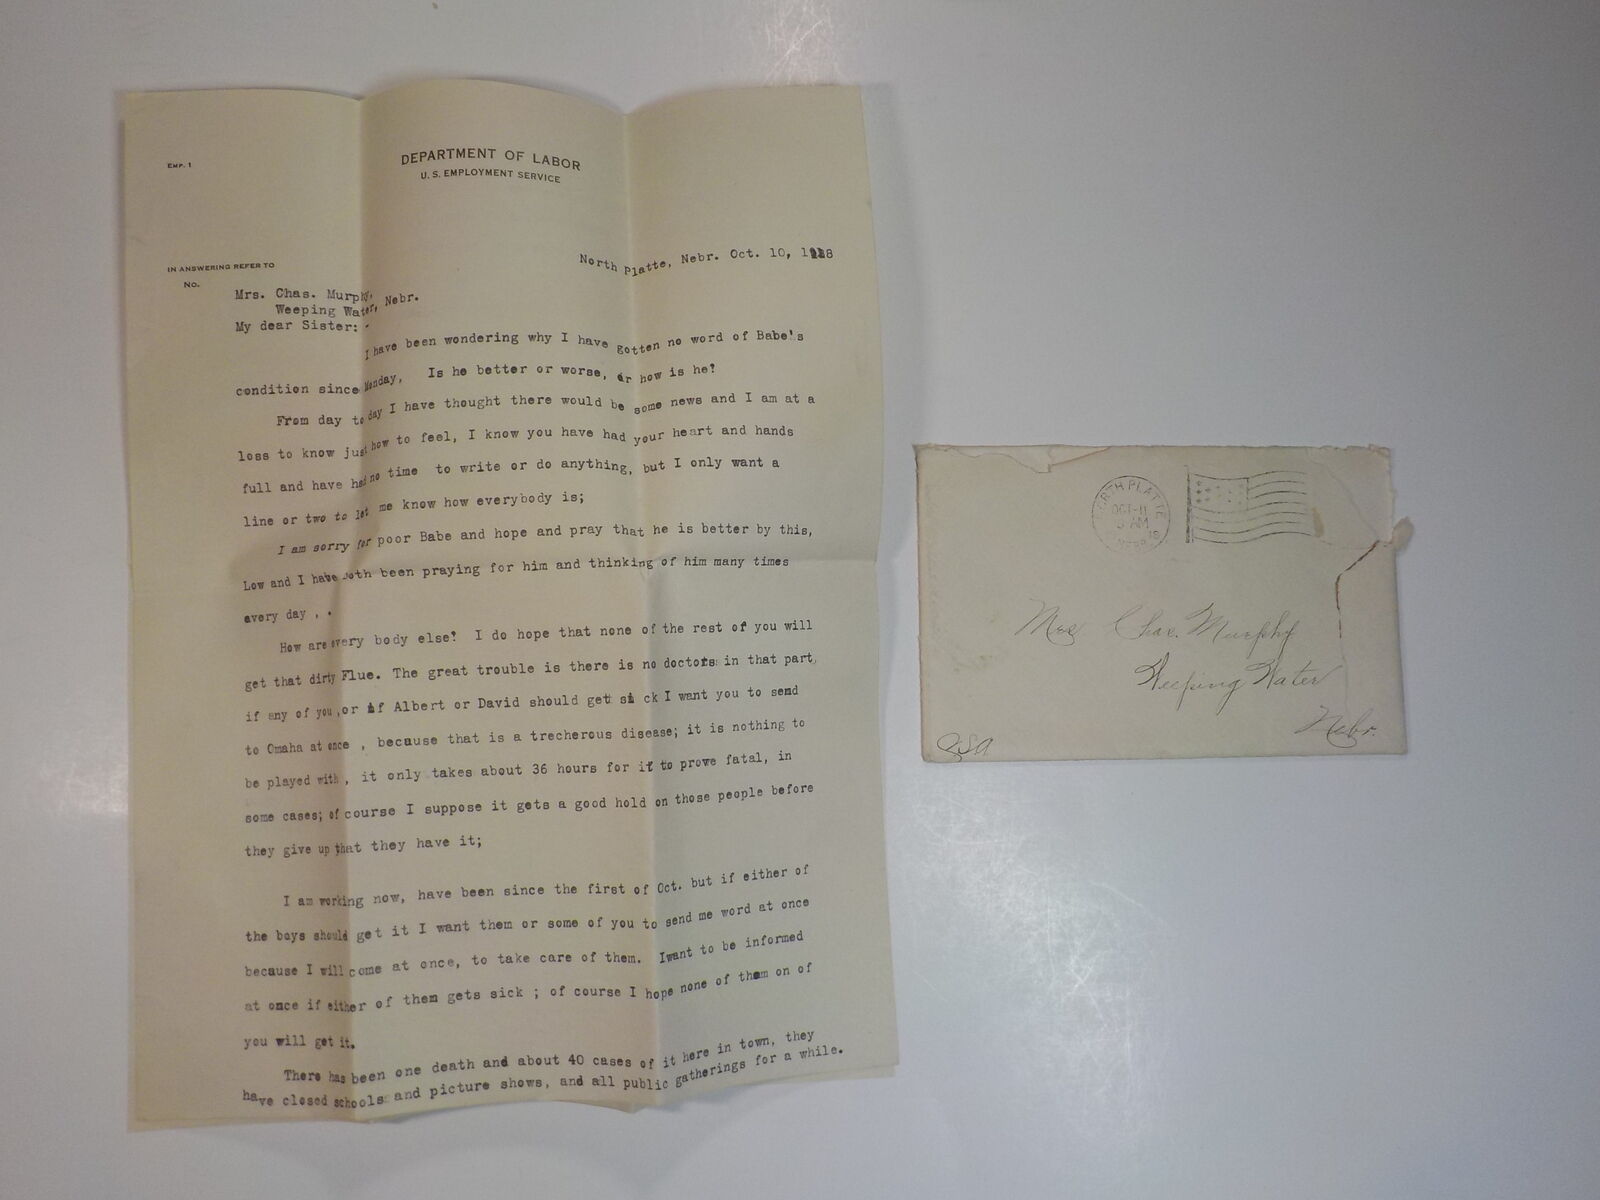 EMP. 1
DEPARTMENT OF LABOR
U. S. EMPLOYMENT SERVICE
IN ANSWERING REFER TO
No.
North Platte, Nebr. Oct. 10, 1918
Mrs. Chas. Murphy,
Weeping Water, Nebr.
My dear Sister: -
I have been wondering why I have gotten no word of Babe's
condition since Monday, Is he better or worse, or how is he?
From day to day I have thought there would be some news and I am at a
loss to know just how to feel, I know you have had your heart and hands
full and have had no time to write or do anything, but I only want a
line or two to let me know how everybody is;
I am sorry for poor Babe and hope and pray that he is better by this,
Low and I have both been praying for him and thinking of him many times
every day , .
How are every body else? I do hope that none of the rest of you will
get that dirty Flue. The great trouble is there is no doctors in that part,
if any of you ,or if Albert or David should get sick I want you to send
to Omaha at once , because that is a trecherous disease; it is nothing to
be played with, it only takes about 36 hours for it to prove fatal, in
some cases; of course I suppose it gets a good hold on those people before
they give up that they have it;
I am working now, have been since the first of Oct. but if either of
the boys should get it I want them or some of you to send me word at once
because I will come at once, to take care of them. Iwant to be informed
at once if either of them gets sick ; of course I hope none of them on of
you will get it.
There has been one death and about 40 cases of it here in town, they
have closed schools and picture shows, and all public gatherings for a while.
NORTH PLATTE
OCT 11
AM
18
NEBR.
Mrs Chas. Murphy
Weeping Water
Nebr.